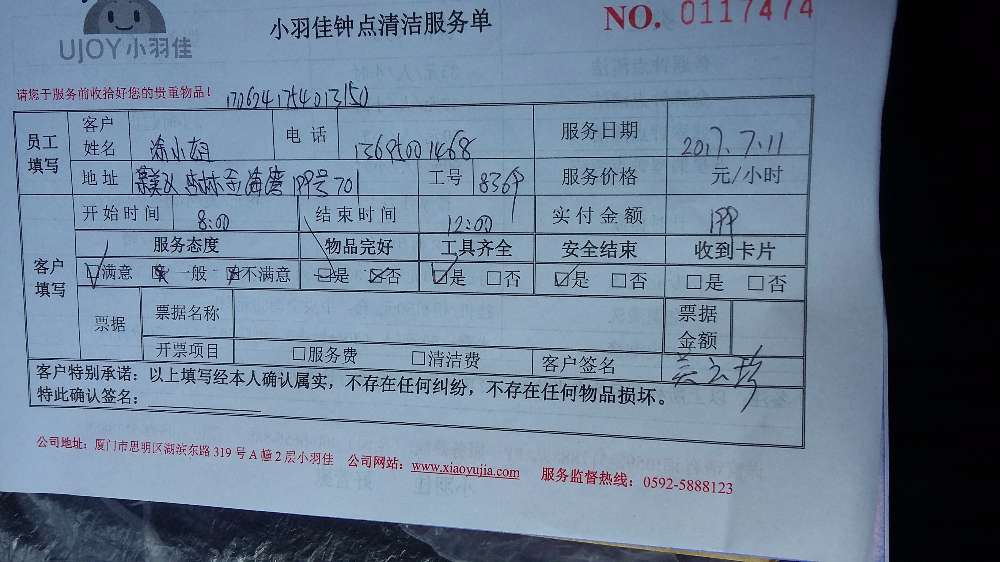 UJOY小羽佳
小羽佳钟点清洁服务单
NO. 0117474
请您于服务前收拾好您的贵重物品！
1706241754013150
员工填写 客户姓名 涂小姐 电话 13695001468 服务日期 2017.7.11
地址 海 199号701 工号 8369 服务价格 元/小时
开始时间 8:00 结束时间 12:00 实付金额 199
客户填写 服务态度 物品完好 工具齐全 安全结束 收到卡片
☑满意 □一般 □不满意 □是 □否 ☑是 □否 ☑是 □否 □是 □否
票据 票据名称 票据金额
开票项目 □服务费 □清洁费 客户签名
客户特别承诺：以上填写经本人确认属实，不存在任何纠纷，不存在任何物品损坏。
特此确认签名：
公司地址：厦门市思明区湖滨东路319号A幢2层小羽佳 公司网站：www.xiaoyujia.com 服务监督热线：0592-5888123